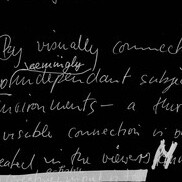 By visually connec
seemingly
independant subje
environments — a
visible connection is
eated in the viewers